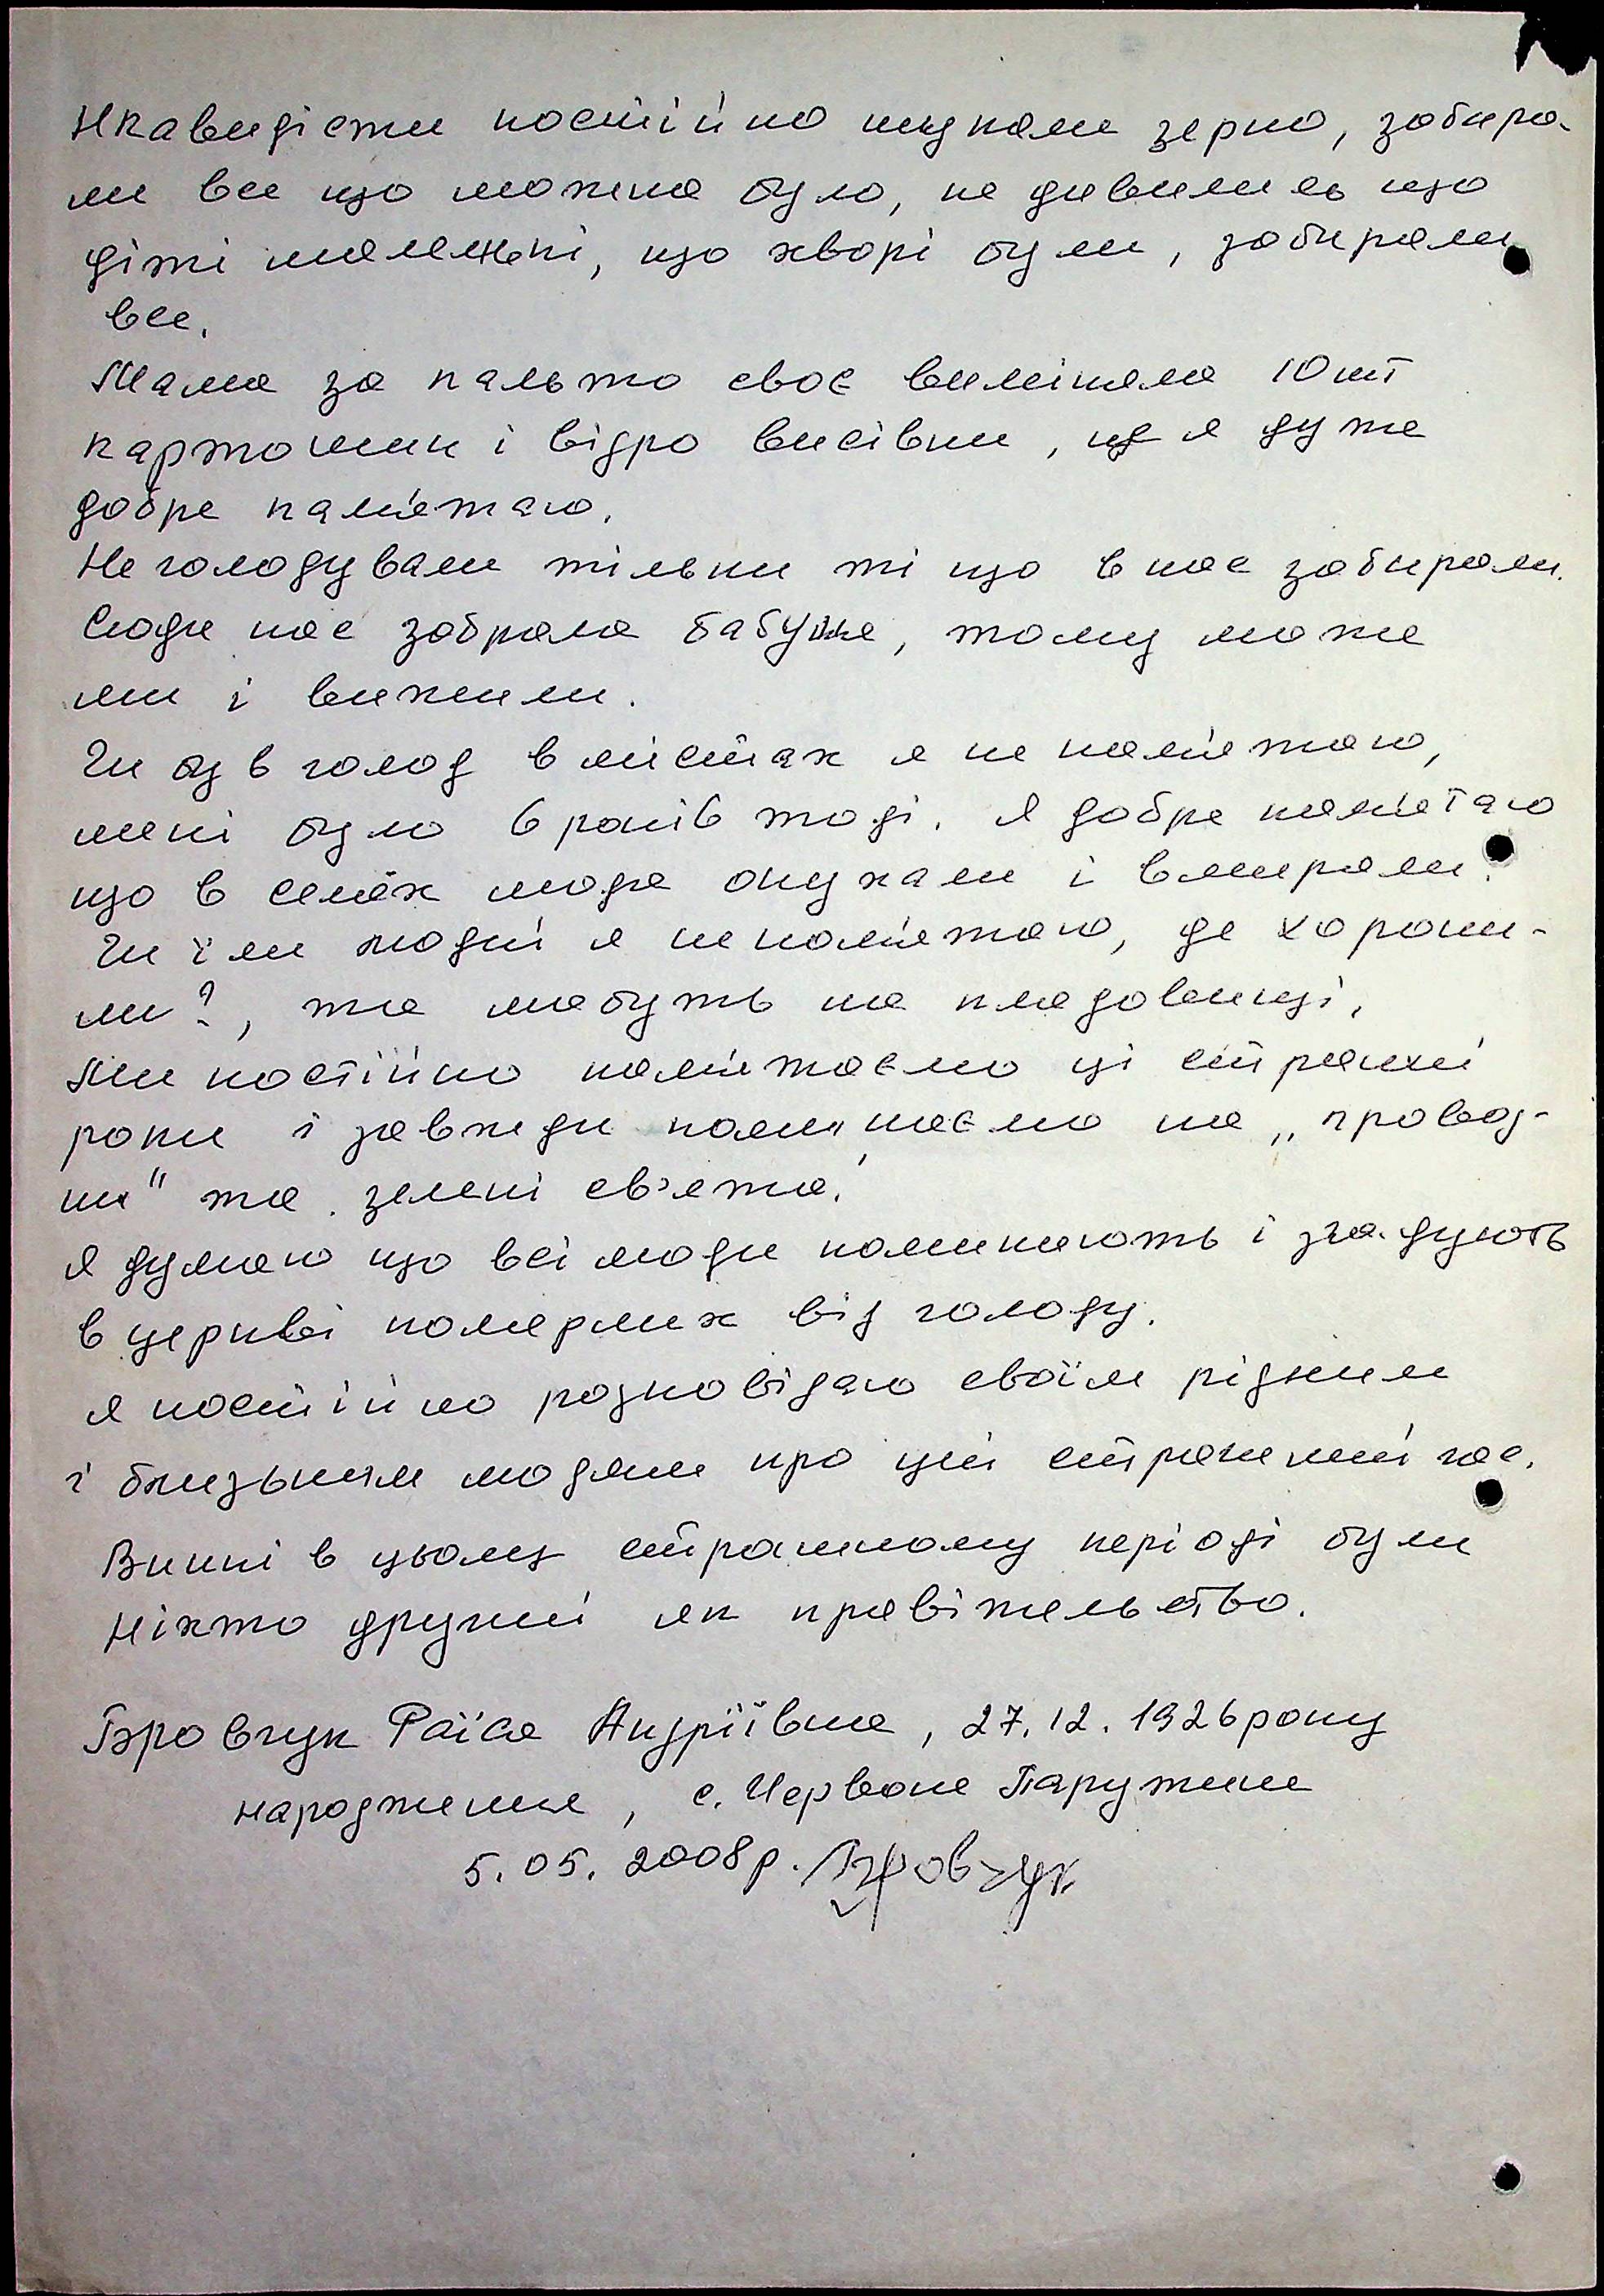 Нкаведісти постійно шукали зерно, забира-
ли все що можна було, не дивились що
діти маленькі, що хворі були, забирали
все.
Мама за пальто своє виміняла 10 шт
картошин і відро висівки, це я дуже
добре пам'ятаю.
Не голодували тільки ті що в нас забирали.
Сюди нас забрала бабушка, тому може
ми і вижили.
Чи був голод в містах я не пам'ятаю,
мені було 6 років тоді. Я добре пам'ятаю
що в селах люди опухали і вмирали.
Чи їли людей я не пам'ятаю, де хорони-
ли?, та мабуть на кладовищі.
Ми постійно пам'ятаємо ці страшні
роки і завжди поминаємо на „провод-
ни" та зелені св'ята.
Я думаю що всі люди поминають і згадують
в церкві померлих від голоду.
Я постійно розповідаю своїм рідним
і близьким людям про цей страшний час.
Винні в цьому страшному періоді були
ніхто другий як правітельство.
Бровчук Раїса Андріївна, 27.12.1926 року
народження, с. Червоне Паружжя
5.05.2008 р. Бровчук